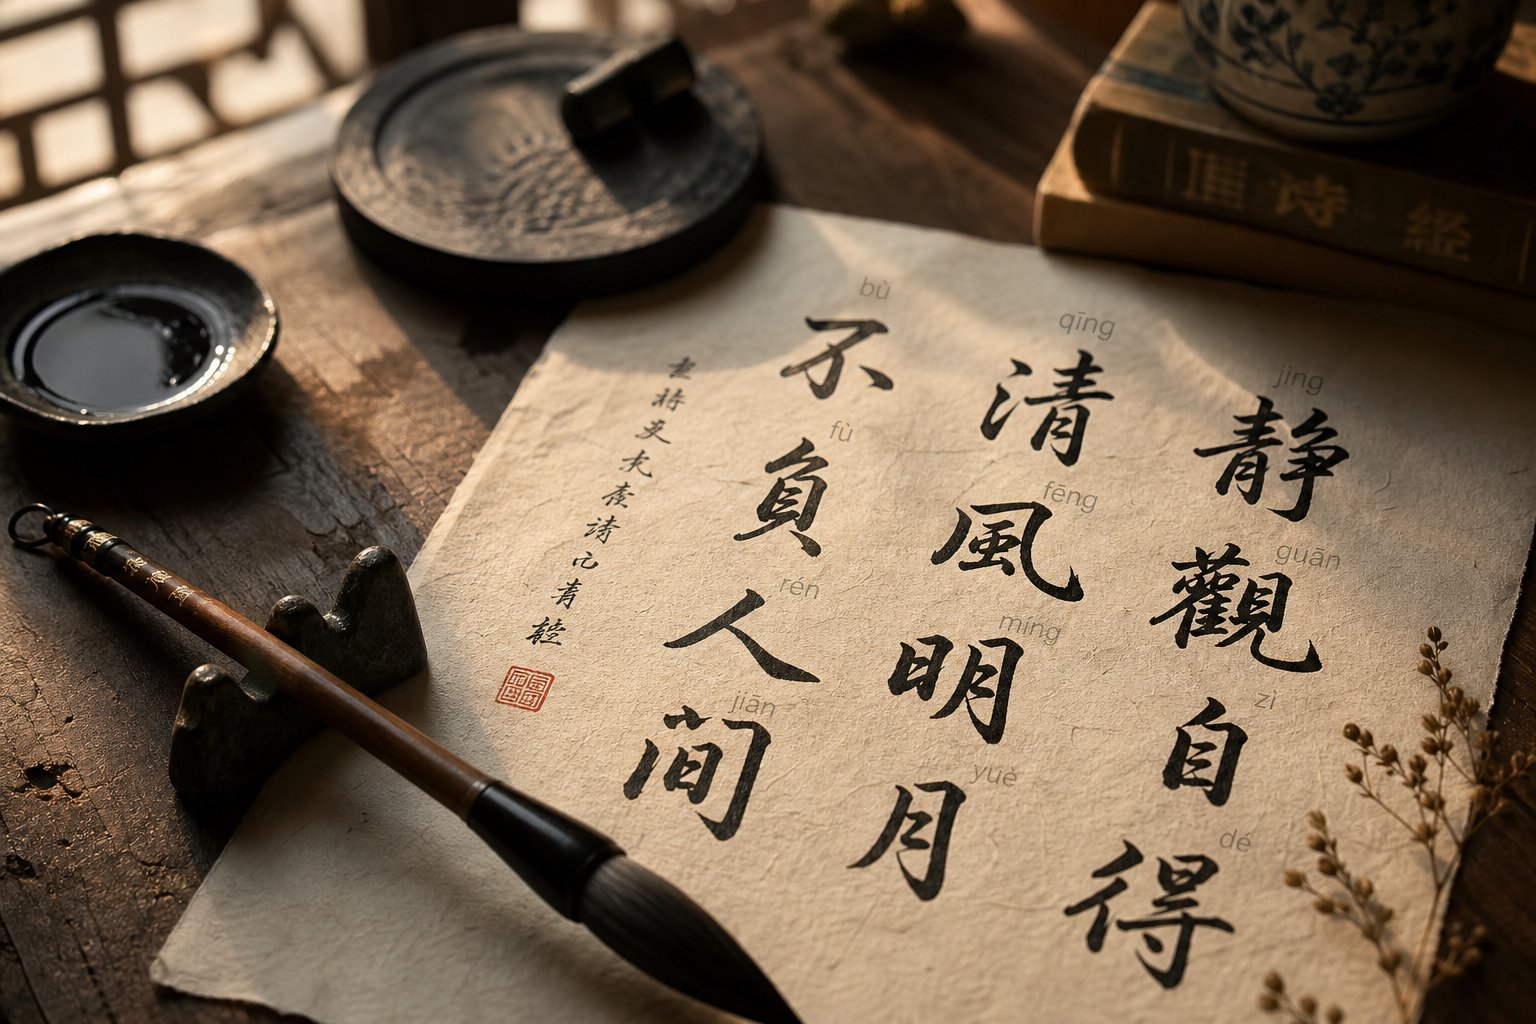 静觀自得
jìng guān zì dé
清風明月
qīng fēng míng yuè
不負人間
bù fù rén jiān
诗 经